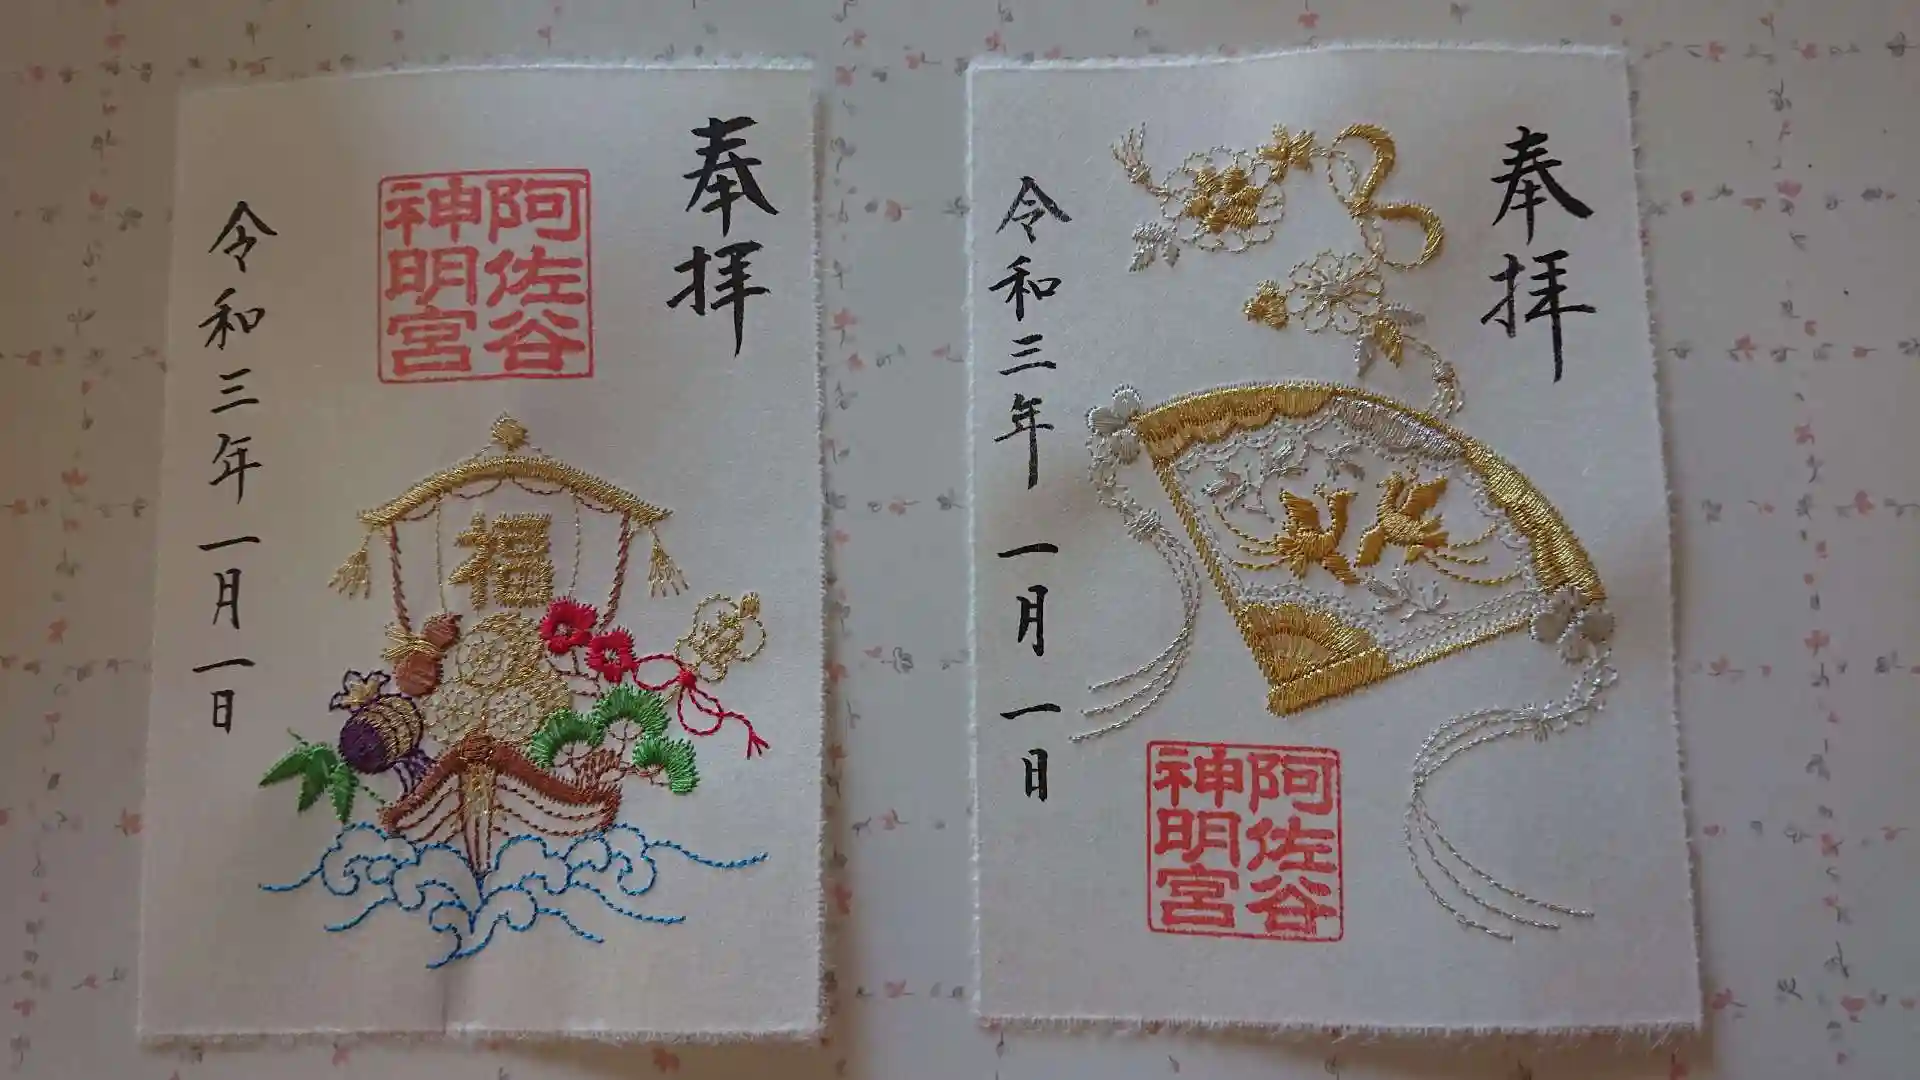 奉拝
阿佐谷
神明宮
福
令和三年一月一日
奉拝
阿佐谷
神明宮
令和三年一月一日